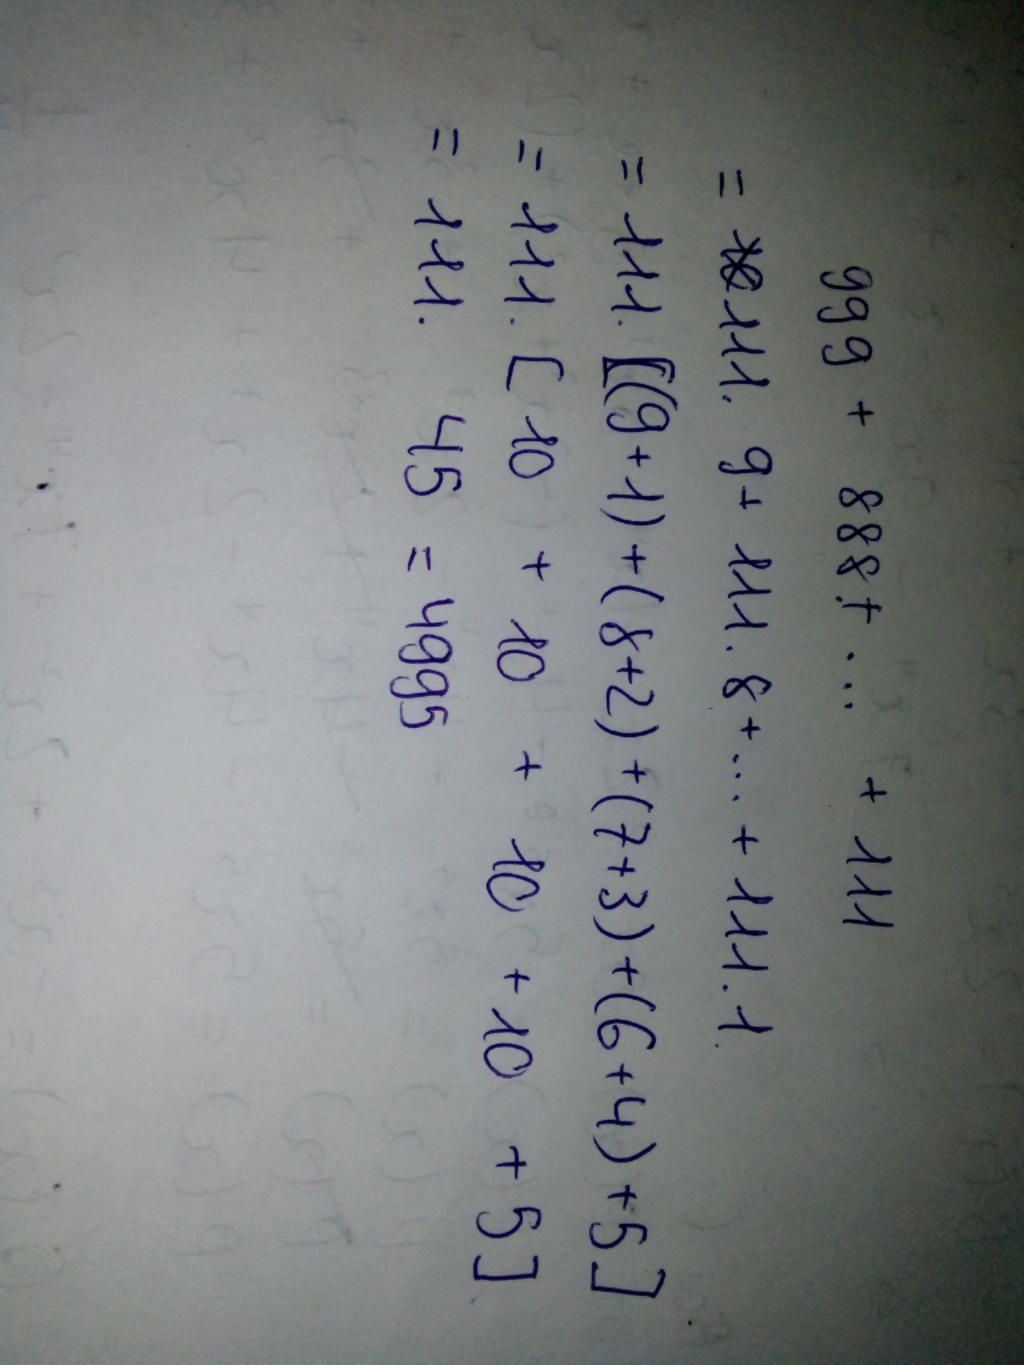 999 + 888+ ... + 111
= 111. 9+ 111. 8+... + 111. 1
= 111. [(9+1)+(8+2)+(7+3)+(6+4)+5]
= 111. [10 + 10 + 10 +10 +5]
= 111. 45 = 4995